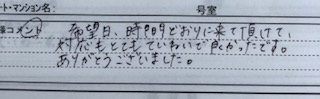 ート・マンション名： 号室
コメント 希望日、時間どおりに来て頂けて、
対応もとてもていねいで良かったです。
ありがとうございました。